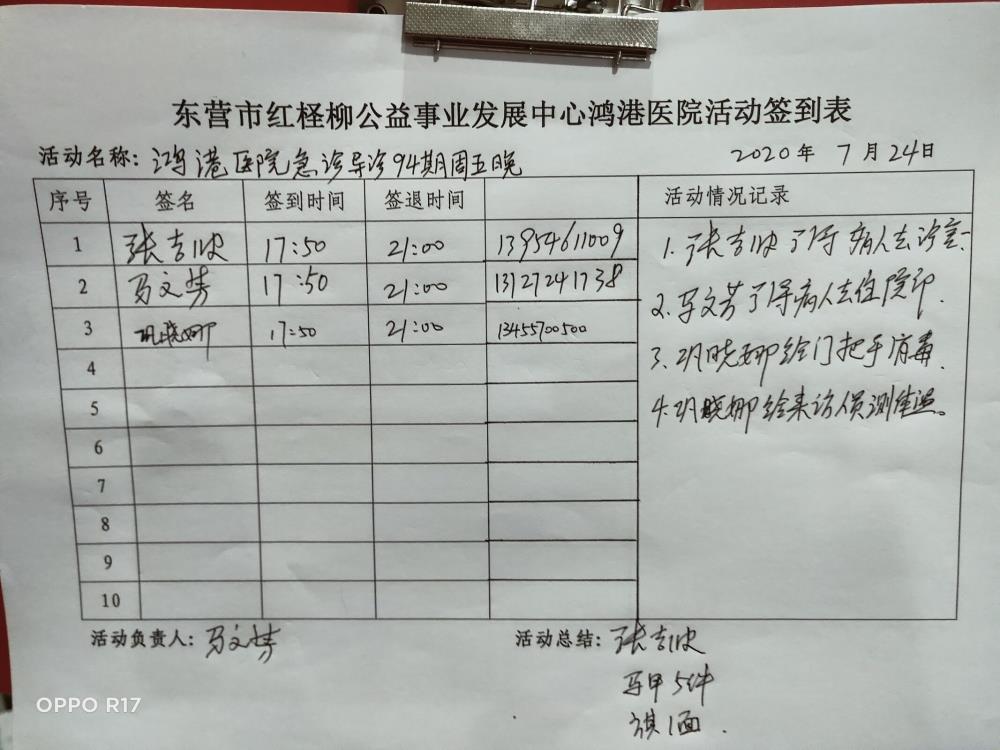 东营市红柽柳公益事业发展中心鸿港医院活动签到表
活动名称: 鸿港医院急诊导诊94期周五晚 2020年 7月24日
序号 签名 签到时间 签退时间 活动情况记录
1 张吉 17:50 21:00 13954611009
2 马文芳 17:50 21:00 13127241738
3 巩晓娜 17:50 21:00 13455700500
4
5
6
7
8
9
10
1. 张吉 病人去诊室.
2. 马文芳 病人去住院部.
3. 巩晓娜给门把手消毒.
4. 巩晓娜给来访人员测体温。
活动负责人: 马文芳 活动总结: 张吉
马甲5件
旗1面.
OPPO R17